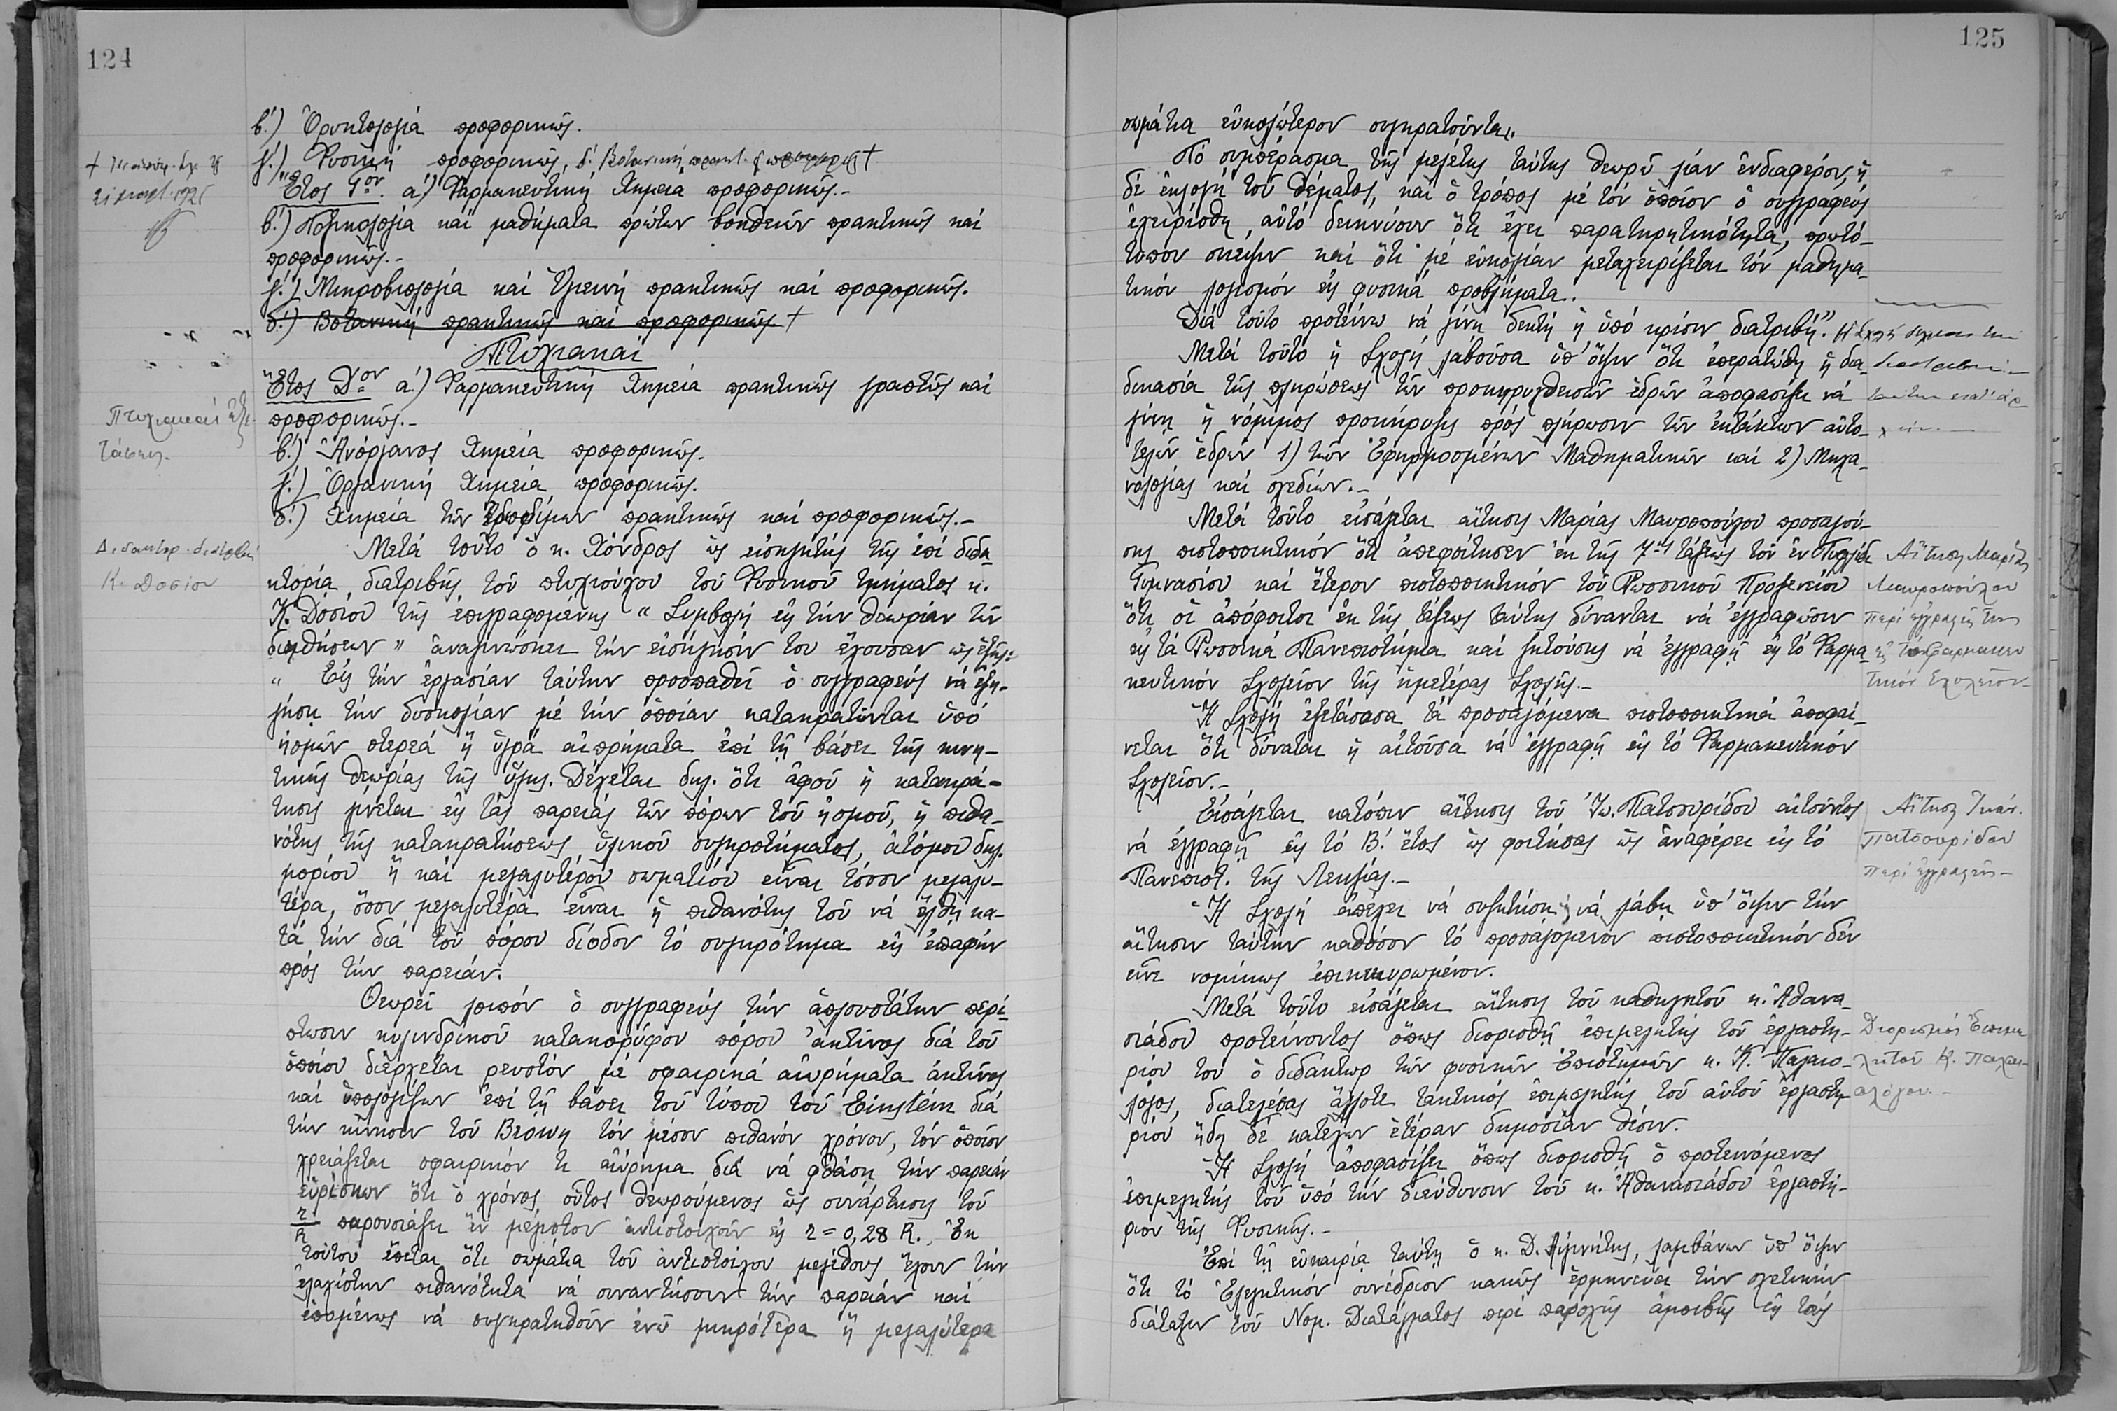 124
β΄.) Ὀρυκτολογία προφορικῶς.
γ΄.) Φυσική προφορικῶς, δ΄. Βοτανική πρακτ. †
Ἔτος Γον. α΄.) Φαρμακευτική Χημεία προφορικῶς.-
β΄.) Τοξικολογία καί μαθήματα πρώτων βοηθειῶν πρακτικῶς καί
προφορικῶς.-
γ΄.) Μικροβιολογία καί Ὑγιεινή πρακτικῶς καί προφορικῶς.
δ΄.) Βοτανική πρακτικῶς καί προφορικῶς †
Πτυχιακαί
Ἔτος Δον α΄.) Φαρμακευτική Χημεία πρακτικῶς γραπτῶς καί
Πτυχιακαί ἐξε-
προφορικῶς.-
τάσεις.-
β΄.) Ἀνόργανος Χημεία προφορικῶς.
γ΄.) Ὀργανική Χημεία προφορικῶς.
δ΄.) Χημεία τῶν τροφίμων πρακτικῶς καί προφορικῶς.-
Διδακτορ. διατριβή
Κ. Δοσίου
Μετά τοῦτο ὁ κ. Χόνδρος ὡς εἰσηγητής τῆς ἐπί διδα-
κτορίᾳ διατριβῆς τοῦ πτυχιούχου τοῦ Φυσικοῦ τμήματος κ.
Κ. Δοσίου τῆς ἐπιγραφομένης " Συμβολή εἰς τήν θεωρίαν τῶν
διηθήσεων " ἀναγινώσκει τήν εἰσήγησίν του ἔχουσαν ὡς ἑξῆς:
" Εἰς τήν ἐργασίαν ταύτην προσπαθεῖ ὁ συγγραφεύς νά ἐξη-
γήσῃ τήν δυσκολίαν μέ τήν ὁποίαν κατακρατῶνται ὑπό
ἠθμῶν στερεά ἤ ὑγρά αἰωρήματα ἐπί τῇ βάσει τῆς κινη-
τικῆς θεωρίας τῆς ὕλης. Δέχεται δηλ. ὅτι ἀφοῦ ἡ κατακρά-
τησις γίνεται εἰς τάς παρειάς τῶν πόρων τοῦ ἠθμοῦ, ἡ πιθα-
νότης τῆς κατακρατήσεως ὑλικοῦ συγκροτήματος, ἀτόμου δηλ.
μορίου ἤ καί μεγαλυτέρου σωματίου εἶναι τόσον μεγαλυ-
τέρα, ὅσον μεγαλυτέρα εἶναι ἡ πιθανότης τοῦ νά ἔλθῃ κα-
τά τήν διά τοῦ πόρου δίοδον τό συγκρότημα εἰς ἐπαφήν
πρός τήν παρειάν.
Θεωρεῖ λοιπόν ὁ συγγραφεύς τήν ἁπλουστάτην περί-
πτωσιν κυλινδρικοῦ κατακορύφου πόρου ἀκτῖνος διά τοῦ
ὁποίου διέρχεται ρευστόν μέ σφαιρικά αἰωρήματα ἀκτῖνος
καί ὑπολογίζων ἐπί τῇ βάσει τοῦ τύπου τοῦ Einstein διά
τήν κίνησιν τοῦ Brown τόν μέσον πιθανόν χρόνον, τόν ὁποῖον
χρειάζεται σφαιρικόν τι αἰώρημα διά νά φθάσῃ τήν παρειάν
εὑρίσκων ὅτι ὁ χρόνος οὗτος θεωρούμενος ὡς συνάρτησις τοῦ
r/R παρουσιάζει ἕν μέγιστον ἀντιστοιχοῦν εἰς r = 0,28 R. Ἐκ
τούτου ἕπεται ὅτι σωμάτια τοῦ ἀντιστοίχου μεγέθους ἔχουν τήν
ἐλαχίστην πιθανότητα νά συναντήσουν τήν παρειάν καί
ἑπομένως νά συγκρατηθοῦν ἐνῶ μικρότερα ἤ μεγαλύτερα
125
σωμάτια εὐκολώτερον συγκρατοῦνται.
Τό συμπέρασμα τῆς μελέτης ταύτης θεωρῶ λίαν ἐνδιαφέρον, ἡ
δέ ἐκλογή τοῦ θέματος, καί ὁ τρόπος μέ τόν ὁποῖον ὁ συγγραφεύς
ἐχειρίσθη αὐτό δεικνύουν ὅτι ἔχει παρατηρητικότητα, πρωτό-
τυπον σκέψιν καί ὅτι μέ εὐκολίαν μεταχειρίζεται τόν μαθημα-
τικόν λογισμόν εἰς φυσικά προβλήματα.
Διά τοῦτο προτείνω νά γίνῃ δεκτή ἡ ὑπό κρίσιν διατριβή".
Μετά τοῦτο ἡ Σχολή λαβοῦσα ὑπ' ὄψιν ὅτι ἐπερατώθη ἡ δια-
δικασία τῆς πληρώσεως τῶν προκηρυχθεισῶν ἑδρῶν ἀποφασίζει νά
γίνῃ ἡ νόμιμος προκήρυξις πρός πλήρωσιν τῶν ἐκτάκτων αὐτο-
τελῶν ἑδρῶν 1) τῶν Ἐφηρμοσμένων Μαθηματικῶν καί 2) Μηχα-
νολογίας καί σχεδίων.-
Μετά τοῦτο εἰσάγεται αἴτησις Μαρίας Μαυροπούλου προσαγού-
σης πιστοποιητικόν ὅτι ἀπεφοίτησεν ἐκ τῆς 7ης τάξεως τοῦ ἐν Τιφλίδι
Γυμνασίου καί ἕτερον πιστοποιητικόν τοῦ Ρωσσικοῦ Προξενείου
ὅτι οἱ ἀπόφοιτοι ἐκ τῆς τάξεως ταύτης δύνανται νά ἐγγραφῶσιν
εἰς τά Ρωσσικά Πανεπιστήμια καί ζητούσης νά ἐγγραφῇ εἰς τό Φαρμα-
κευτικόν Σχολεῖον τῆς ἡμετέρας Σχολῆς.-
Αἴτησις Μαρίας
Μαυροπούλου
περί ἐγγραφῆς της
εἰς τό Φαρμακευ
τικόν Σχολεῖον-
Ἡ Σχολή ἐξετάσασα τά προσαγόμενα πιστοποιητικά ἀποφαί-
νεται ὅτι δύναται ἡ αἰτοῦσα νά ἐγγραφῇ εἰς τό Φαρμακευτικόν
Σχολεῖον.-
Εἰσάγεται κατόπιν αἴτησις τοῦ Ἰω. Πατσουρίδου αἰτοῦντος
νά ἐγγραφῇ εἰς τό Β΄. ἔτος ὡς φοιτήσας ὡς ἀναφέρει εἰς τό
Πανεπιστ. τῆς Λειψίας.-
Αἴτησις Ἰωάν.
Πατσουρίδου
περί ἐγγραφῆς-
Ἡ Σχολή ἀπέχει νά συζητήσῃ νά λάβῃ ὑπ' ὄψιν τήν
αἴτησιν ταύτην καθόσον τό προσαγόμενον πιστοποιητικόν δέν
εἶνε νομίμως ἐπικεκυρωμένον.
Μετά τοῦτο εἰσάγεται αἴτησις τοῦ καθηγητοῦ κ. Ἀθανα-
σιάδου προτείνοντος ὅπως διορισθῇ ἐπιμελητής τοῦ ἐργαστη-
ρίου του ὁ διδάκτωρ τῶν φυσικῶν Ἐπιστημῶν κ. Κ. Παλαιο-
λόγος, διατελέσας ἄλλοτε τακτικός ἐπιμελητής τοῦ αὐτοῦ ἐργαστη-
ρίου ἤδη δέ κατέχων ἑτέραν δημοσίαν θέσιν.
Διορισμός Ἐπιμε
λητοῦ Κ. Παλαι-
ολόγου.-
Ἡ Σχολή ἀποφασίζει ὅπως διορισθῇ ὁ προτεινόμενος
ἐπιμελητής τοῦ ὑπό τήν διεύθυνσιν τοῦ κ. Ἀθανασιάδου ἐργαστη-
ρίου τῆς Φυσικῆς.-
Ἐπί τῇ εὐκαιρίᾳ ταύτῃ ὁ κ. Δ. Αἰγινήτης, λαμβάνων ὑπ' ὄψιν
ὅτι τό Ἐλεγκτικόν συνέδριον κακῶς ἑρμηνεύει τήν σχετικήν
διάταξιν τοῦ Νομ. Διατάγματος περί παροχῆς ἀμοιβῆς εἰς τούς